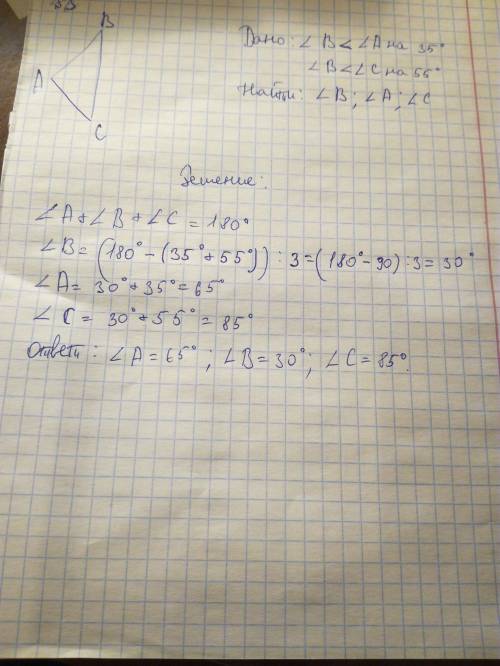 B
A
C
Дано: ∠B < ∠A на 35°
∠B < ∠C на 55°
Найти: ∠B; ∠A; ∠C
Решение:
∠A + ∠B + ∠C = 180°
∠B = (180° - (35° + 55°)) : 3 = (180° - 90) : 3 = 30°
∠A = 30° + 35° = 65°
∠C = 30° + 55° = 85°
Ответ: ∠A = 65°; ∠B = 30°; ∠C = 85°.